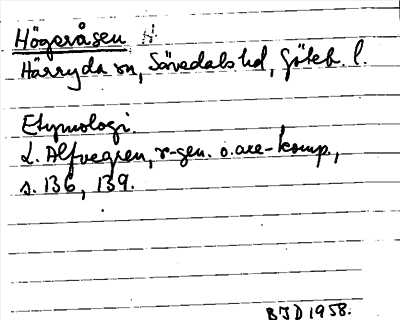 Högeråsen N.
Härryda sn, Sävedals hd, Göteb. l.
Etymologi.
L. Alfvegren, r-gen. o. are-komp.,
s. 136, 139.
BJD 1958.